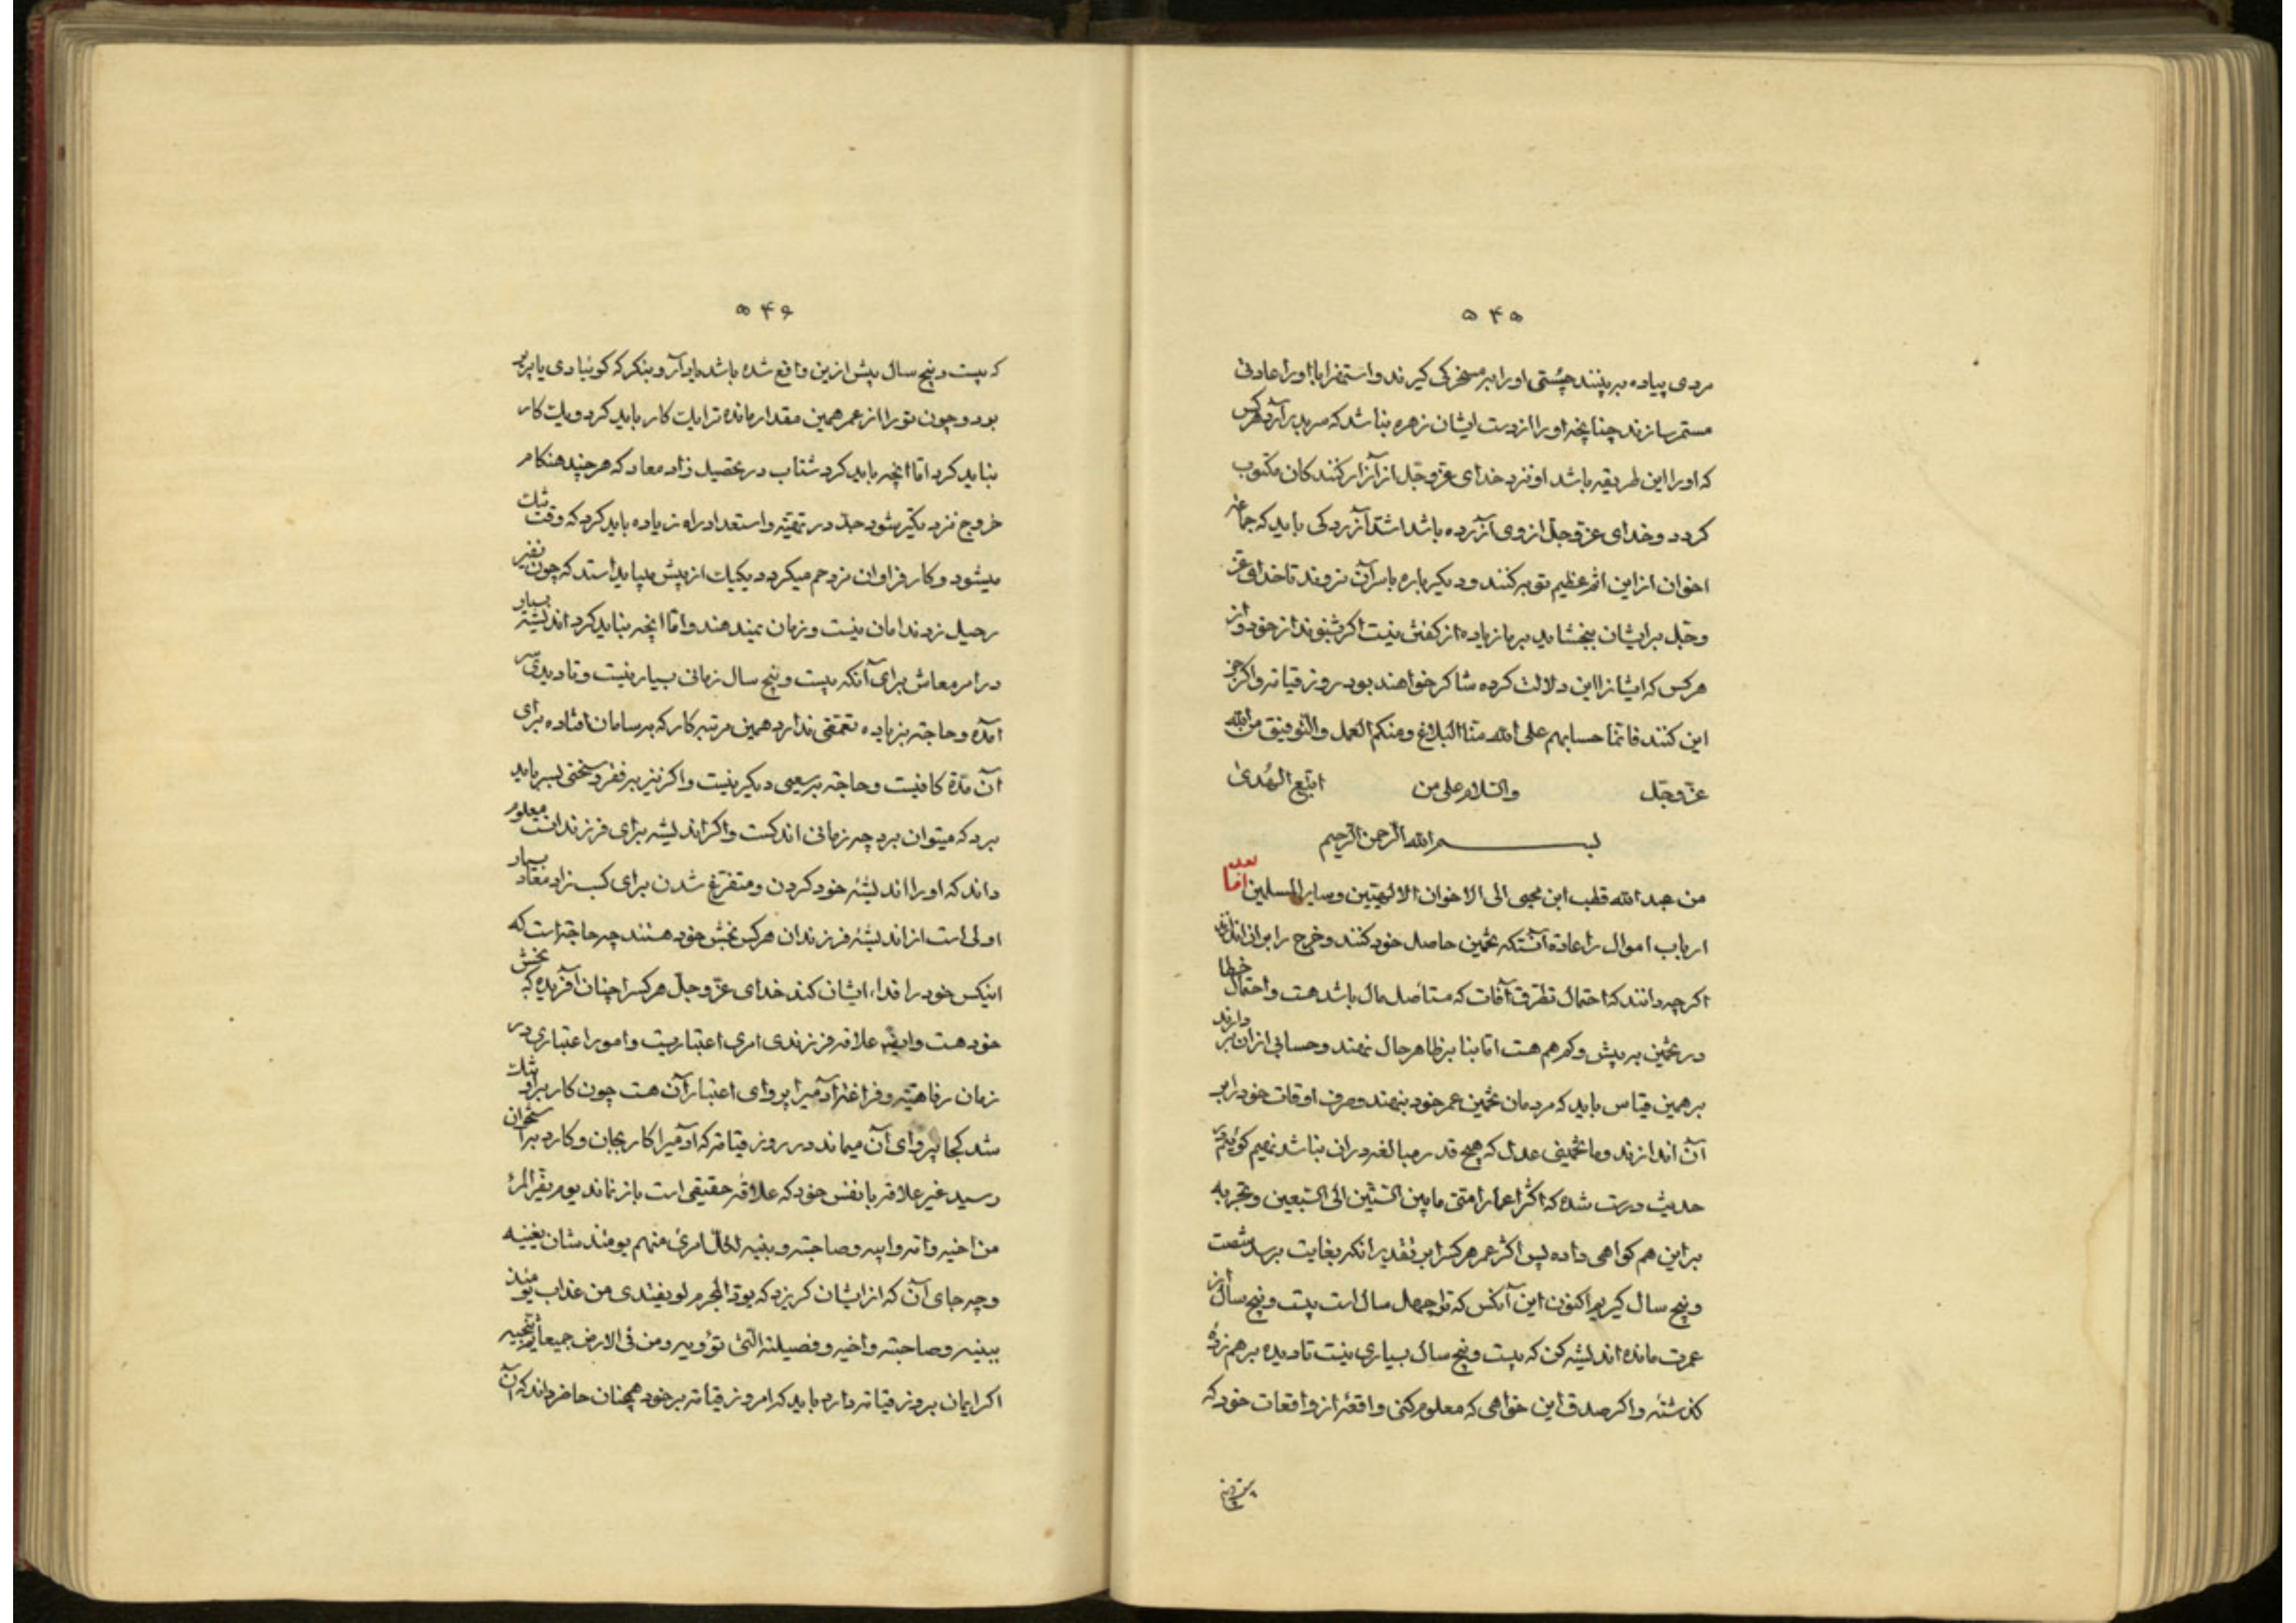 ۵۴۵
مردی پیاده به بینند چستی او را بر مسخرکی کیرند و استهزا با او را عادتی
مستمر سازند چنانچه او را از دست ایشان زهره نباشد که سر بر آرد هرکس
که او را این طریقه باشد او نزد خدای عزوجل از آزارکنندکان مکتوب
کردد و خدای عزوجل از وی آزرده باشد اشد آزردکی باید که جماعه
اخوان از این اثم عظیم توبه کنند و دیکر باره با سر آن نروند تا خدای عز
وجل بر ایشان ببخشاید بر ما زیاده از کفتن نیست اکر شنوند از خود و از
هرکس که ایشانرا این دلالت کرده شاکر خواهند بود روز قیامة و اکر جز
این کنند فانما حسابهم علی الله منا البلاغ ومنکم العمل والتوفیق من الله
عزوجل والسلام علی من اتبع الهدی
بسم الله الرحمن الرحیم
من عبد الله قطب ابن محیی الی الاخوان الالهیین وسایر المسلمین اما بعد
ارباب اموال را عادة آنستکه تخمین حاصل خود کنند و خرج را بران اندازند
اکرچه دانند که احتمال تطرق آفات که مستأصل مال باشد هست و احتمال خطا
در تخمین به بیش و کم هم هست اما بنا بر ظاهر حال نهند و حسابی از ان بر دارند
بر همین قیاس باید که مردمان تخمین عمر خود بنهند و صرف اوقات خود را بر
آن اندازند و ما تخمینی عدل که هیچ قدر مبالغه در ان نباشد نهیم کوئیم در
حدیث درست شده که اکثر اعمار امتی ما بین الستین الی السبعین و تجربه
بر این هم کواهی داده پس اکثر عمر هرکس را بر تقدیر انکه بغایت برسد شصت
و پنج سال کیریم اکنون این آنکس که ترا چهل سال است بیست و پنج سال از
عمرت مانده اندیشه کن که بیست و پنج سال بسیاری نیست تا دیده بر هم زده
کذشته و اکر صدق این خواهی که معلوم کنی واقعهٔ از واقعات خود که
۵۴۶
که بیست و پنج سال پیش از این واقع شده باشد یاد آر و بنکر که کوئیا دی یا پریر
بود و چون تو را از عمر همین مقدار مانده ترا یک کار باید کرد و یک کار
نباید کرد اما انچه باید کرد شتاب در تحصیل زاد معاد که هر چند هنکام
خروج نزدیکتر شود جد در تهیئه و استعداد راه زیاده باید کرد که وقت تنک
میشود و کار فراوان مزدحم میکردد یکیک از پیش میباید استد که چون نفیر
رحیل زدند امان نیست و زمان نمیدهند و اما انچه نباید کرد اندیشه بسیار
در امر معاش برای آنکه بیست و پنج سال زمانی بسیار نیست و تا دیدی سر
آمده و حاجة بزیاده تعمقی ندارد همین مرتبه کار که بر سامان افتاده برای
آن مدة کافیست و حاجة بر سعیی دیکر نیست و اکر نیز بر فقر و سختی بسر باید
برد که میتوان برد چه زمانی اندکست و اکر اندیشه برای فرزندانست معلوم
داند که او را اندیشهٔ خود کردن و متفرغ شدن برای کسب زاد معاد بسیار
اولی است از اندیشهٔ فرزندان هرکس بخش خود هستند چه حاجة است که
اینکس خود را فداء ایشان کند خدای عزوجل هرکس را چنان آفریده که بخش
خود هست و علاقه فرزندی امری اعتباریست و امور اعتباری در
زمان رفاهیة و فراغة آدمیرا پروای اعتبار آن هست چون کار بر او تنک
شد کجا پروای آن میماند در روز قیامة که آدمیرا کار بجان و کارد بر استخوان
رسید غیر علاقه با نفس خود که علاقهٔ حقیقی است باز نماند یوم یفر المرء
من اخیه وامه وابیه وصاحبته وبنیه لکل امرئ منهم یومئذ شان یغنیه
و چه جای آن که از ایشان کریزد که یود المجرم لو یفتدی من عذاب یومئذ
ببنیه وصاحبته واخیه وفصیلته التی تؤویه ومن فی الارض جمیعا ثم ینجیه
اکر ایمان بروز قیامة دارد باید که امروز قیامة بر خود همچنان حاضر داند که آن